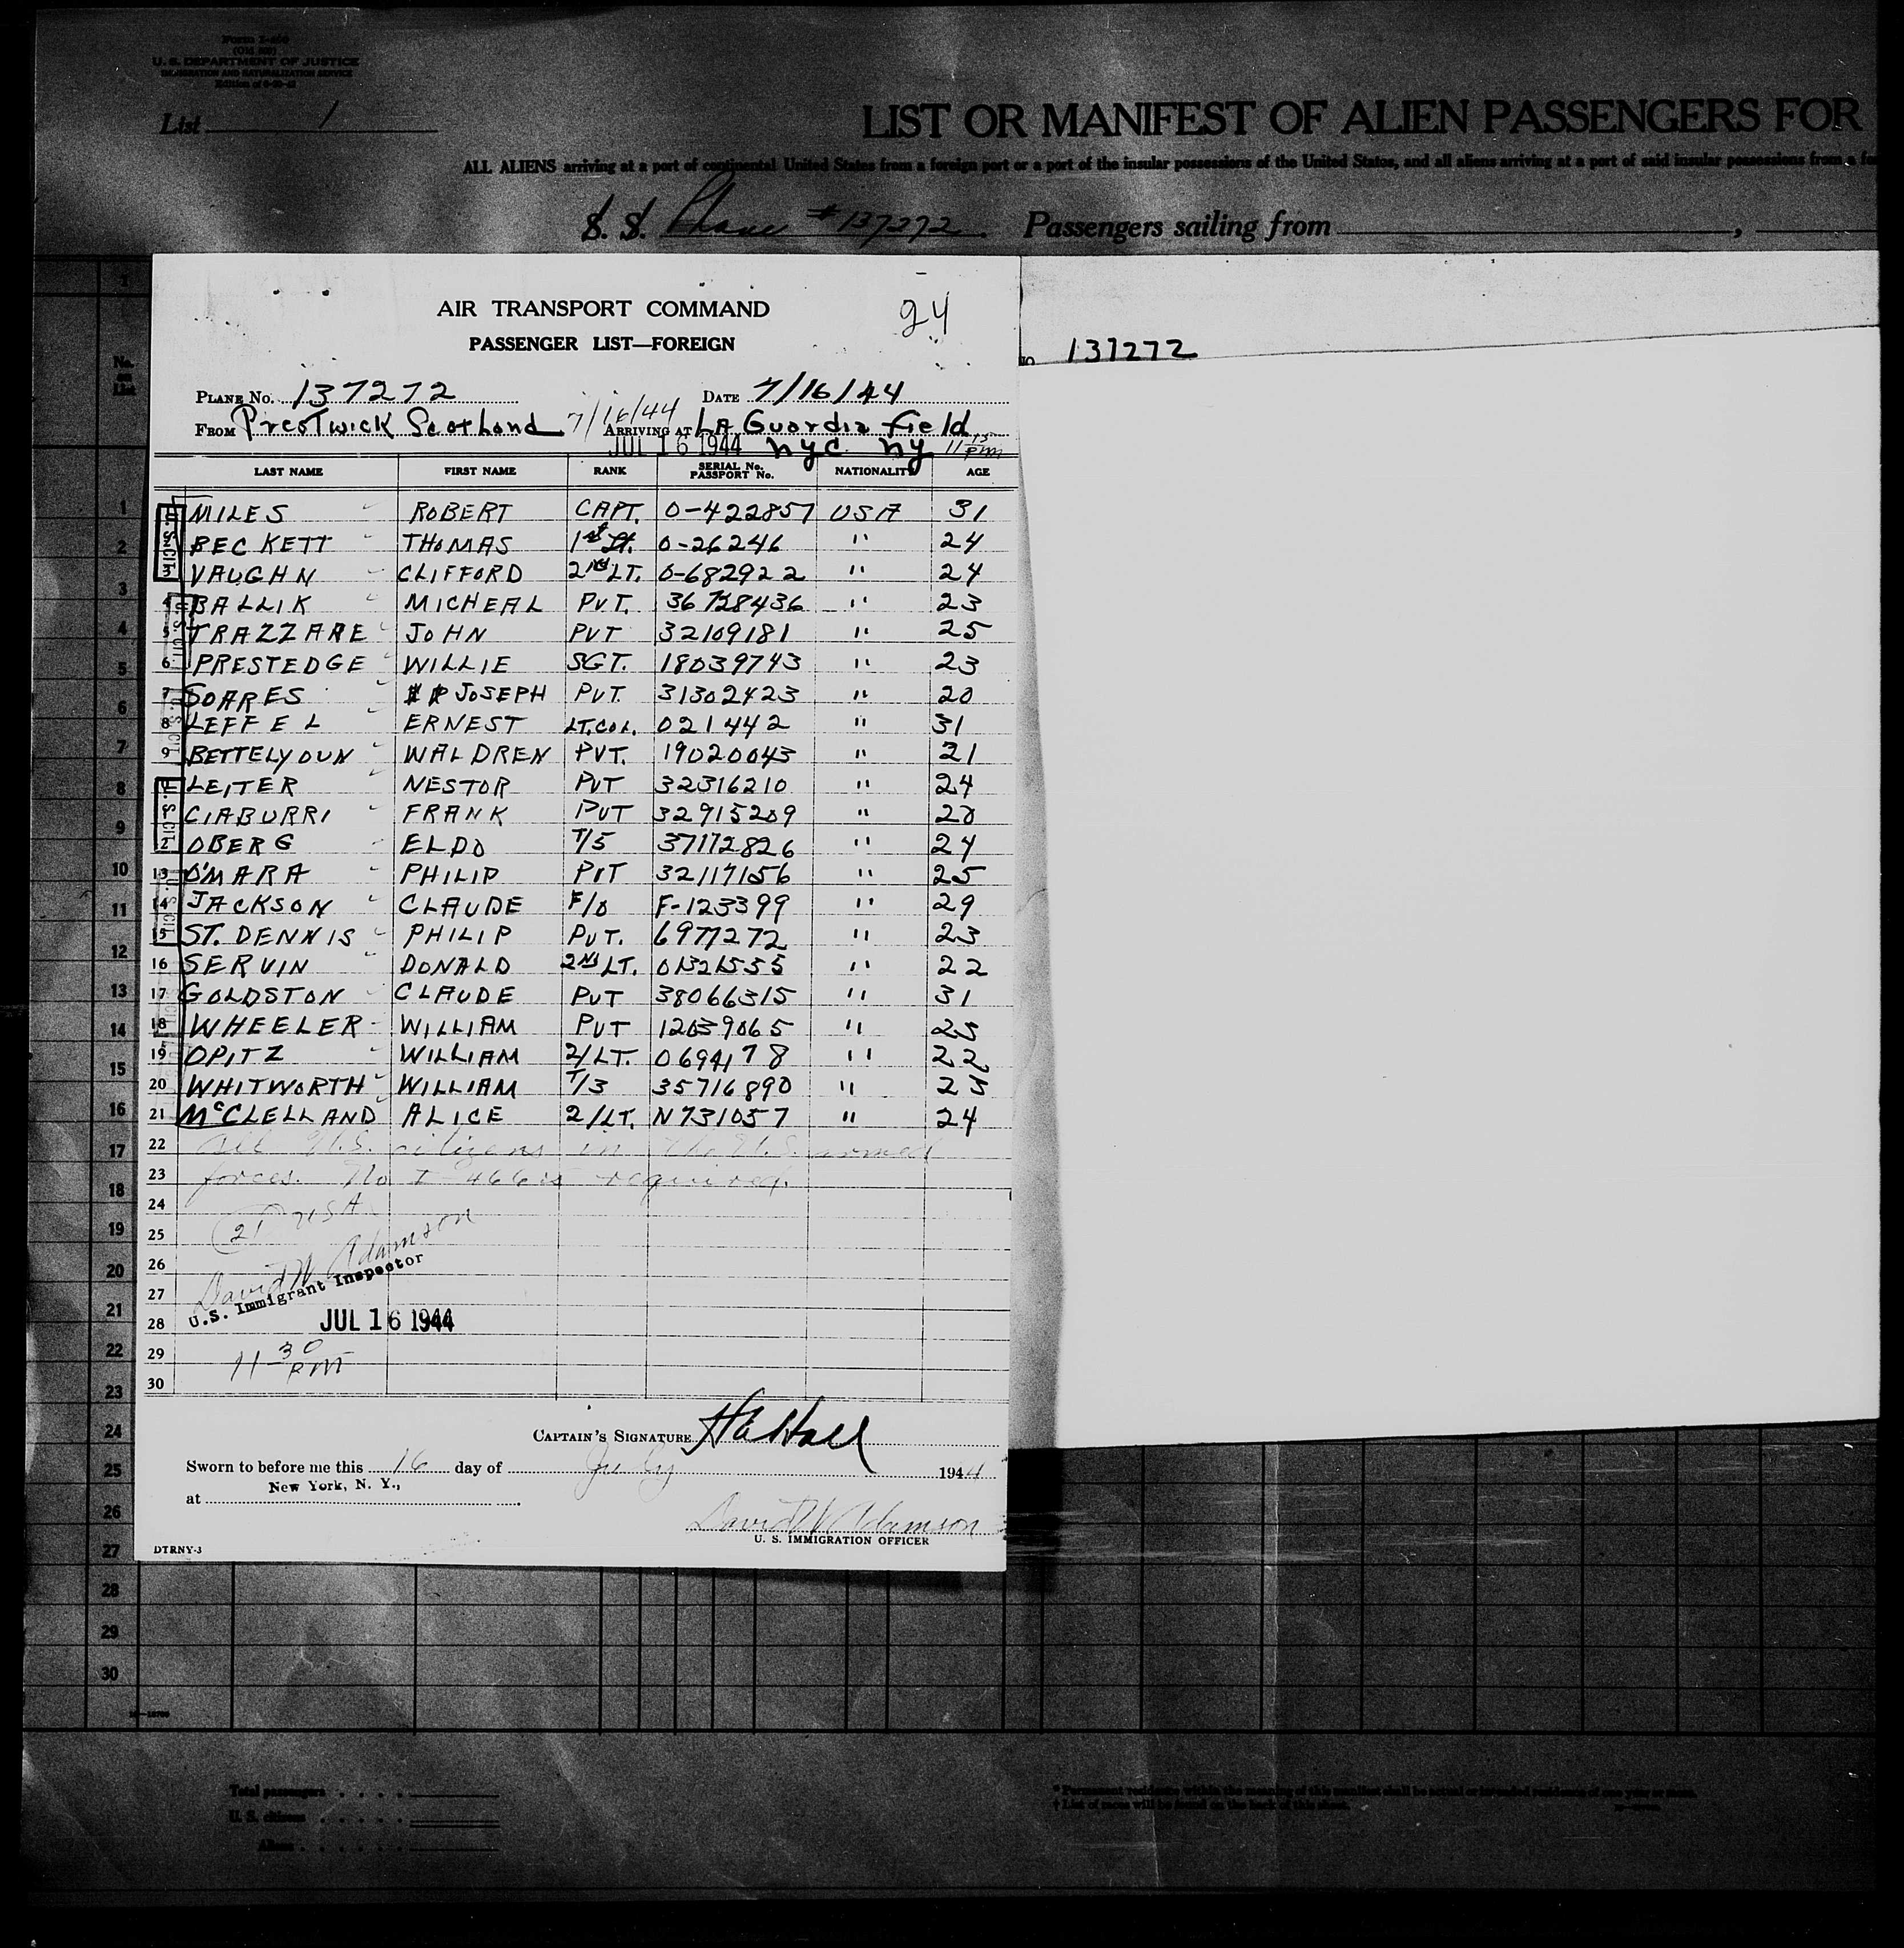 Form I-466
(Old 500)
U. S. DEPARTMENT OF JUSTICE
IMMIGRATION AND NATURALIZATION SERVICE
List 1
LIST OR MANIFEST OF ALIEN PASSENGERS FOR
ALL ALIENS arriving at a port of continental United States from a foreign port or a port of the insular possessions of the United States, and all aliens arriving at a port of said insular possessions from a
S. S. Plane # 137272. Passengers sailing from ,
AIR TRANSPORT COMMAND 24
PASSENGER LIST—FOREIGN
NO 137272
PLANE No. 137272 DATE 7/16/44
FROM Prestwick Scotland 7/16/44 ARRIVING AT LA Guardia Field
JUL 16 1944 nyc ny 11 15 PM
LAST NAME FIRST NAME RANK SERIAL No. PASSPORT No. NATIONALITY AGE
1 MILES ROBERT CAPT. 0-422857 USA 31
2 BECKETT THOMAS 1st Lt. 0-26246 " 24
VAUGHN CLIFFORD 2nd LT. 0-682922 " 24
4 BALLIK MICHEAL PVT. 36728436 " 23
5 TRAZZARE JOHN PVT 32109181 " 25
6 PRESTEDGE WILLIE SGT. 18039743 " 23
7 SOARES JOSEPH PVT. 31302423 " 20
8 LEFFEL ERNEST LT. COL. 021442 " 31
9 BETTELYOUN WALDREN PVT. 19020043 " 21
LEITER NESTOR PVT 32316210 " 24
CIABURRI FRANK PVT 32915209 " 20
OBERG ELDO T/5 37172826 " 24
13 O'MARA PHILIP PVT 32117156 " 25
14 JACKSON CLAUDE F/O F-123399 " 29
15 ST. DENNIS PHILIP PVT. 6977272 " 23
16 SERVIN DONALD 2ND LT. 01321555 " 22
17 GOLDSTON CLAUDE PVT 38066315 " 31
18 WHEELER WILLIAM PVT 12039065 " 25
19 OPITZ WILLIAM 2/LT. 0694178 " 22
20 WHITWORTH WILLIAM T/3 35716890 " 23
21 McCLELLAND ALICE 2/LT. N731057 " 24
22 All U.S. citizens in the U.S. armed
23 forces. No I-466 is required.
24
(21) USA
25
26
David W Adamson
27
U.S. Immigrant Inspector
28 JUL 16 1944
29 11 30 PM
30
CAPTAIN'S SIGNATURE HA Hall
Sworn to before me this 16 day of July 1944
at New York, N. Y.,
David W Adamson
U. S. IMMIGRATION OFFICER
DTRNY-3
1
2
3
4
5
6
7
8
9
10
11
12
13
14
15
16
17
18
19
20
21
22
23
24
25
26
27
28
29
30
Total passengers
U. S. citizens
Aliens
* Permanent residence within the meaning of this manifest shall be actual or intended residence of one year or more.
† List of races will be found on the back of this sheet.